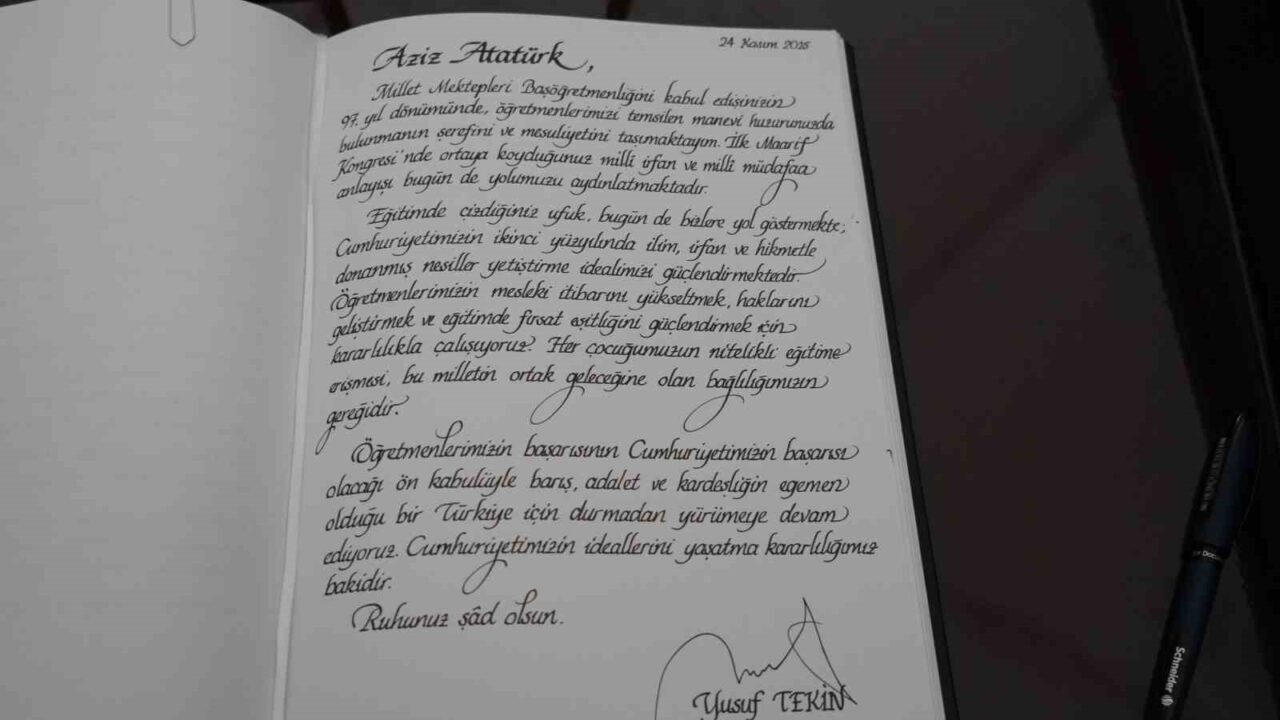 24 Kasım 2025
Aziz Atatürk,
Millet Mektepleri Başöğretmenliğini kabul edişinizin
97. yıl dönümünde, öğretmenlerimizi temsilen manevi huzurunuzda
bulunmanın şerefini ve mesuliyetini taşımaktayım. İlk Maarif
Kongresi'nde ortaya koyduğunuz milli irfan ve milli müdafaa
anlayışı bugün de yolumuzu aydınlatmaktadır.
Eğitimde çizdiğiniz ufuk, bugün de bizlere yol göstermekte;
Cumhuriyetimizin ikinci yüzyılında ilim, irfan ve hikmetle
donanmış nesiller yetiştirme idealimizi güçlendirmektedir.
Öğretmenlerimizin mesleki itibarını yükseltmek, haklarını
geliştirmek ve eğitimde fırsat eşitliğini güçlendirmek için
kararlılıkla çalışıyoruz. Her çocuğumuzun nitelikli eğitime
erişmesi, bu milletin ortak geleceğine olan bağlılığımızın
gereğidir.
Öğretmenlerimizin başarısının Cumhuriyetimizin başarısı
olacağı ön kabulüyle barış, adalet ve kardeşliğin egemen
olduğu bir Türkiye için durmadan yürümeye devam
ediyoruz. Cumhuriyetimizin ideallerini yaşatma kararlılığımız
bakidir.
Ruhunuz şâd olsun.
Yusuf TEKİN
Schneider